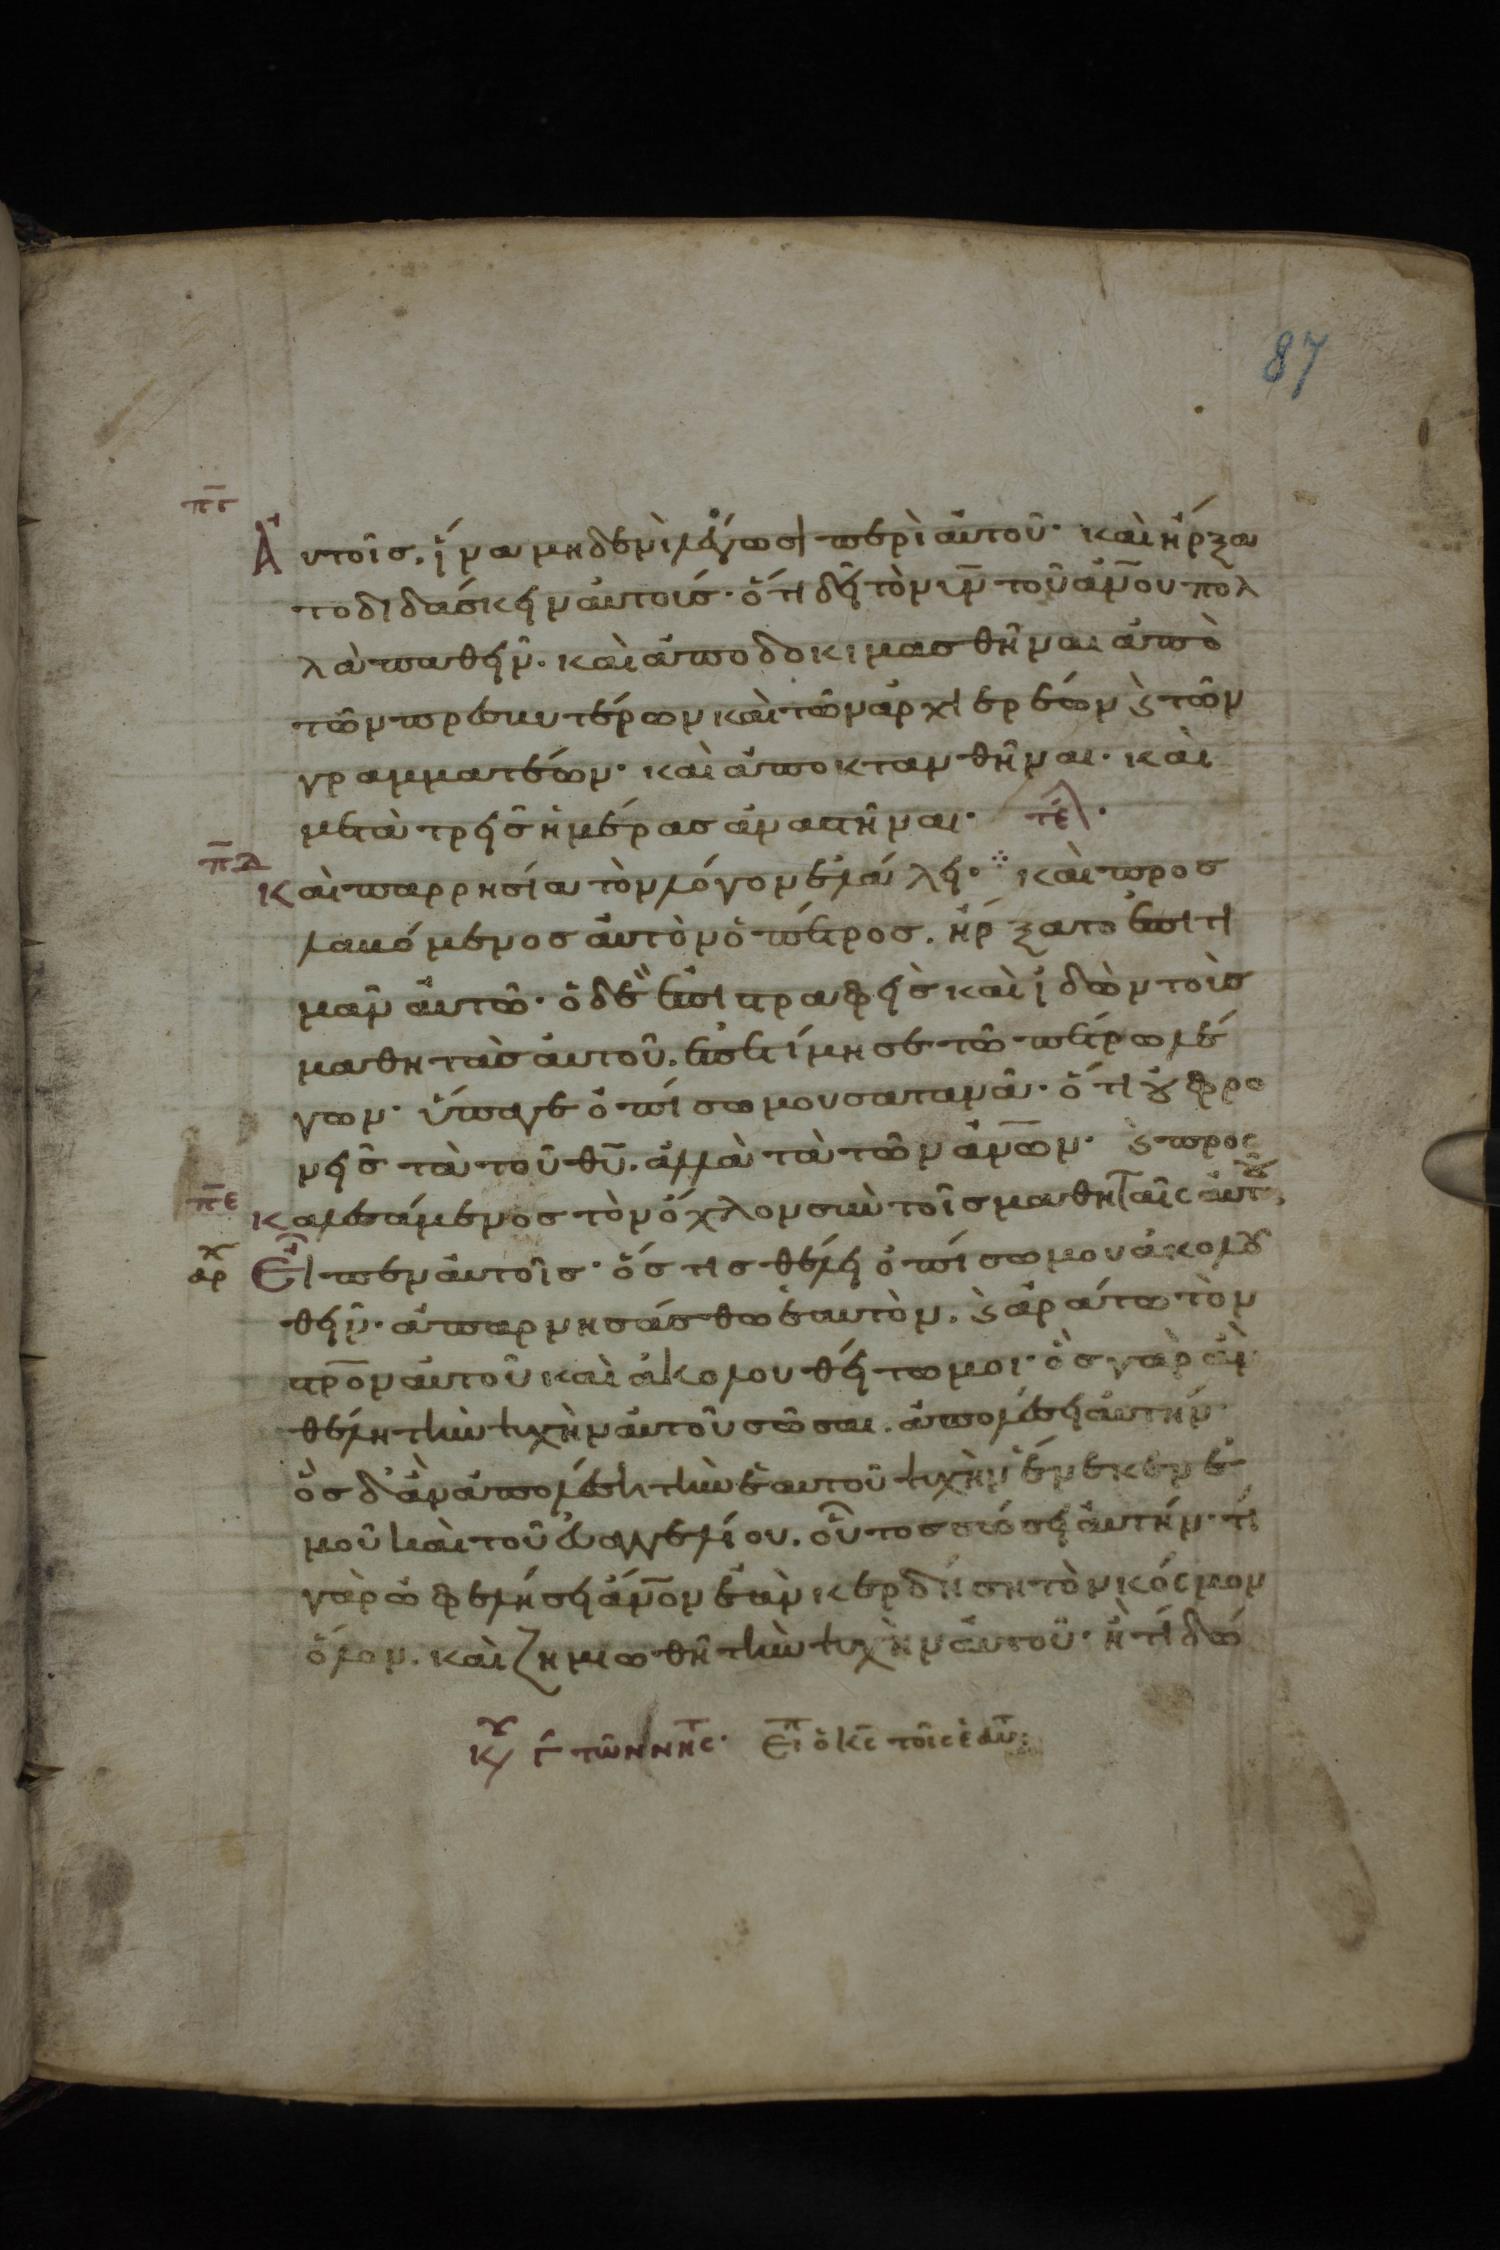 87
π̅γ̅
Αὐτοῖσ. ἵνα μηδενὶ λέγωσι περὶ αὐτοῦ· καὶ ἤρξα
το διδάσκειν αὐτοὺσ· ὅτι δεῖ τὸν υἱ̅ν̅ τοῦ ἀν̅ου πολ
λὰ παθεῖν. καὶ ἀποδοκιμασθῆναι ἀπὸ
τῶν πρεσβυτέρων καὶ τῶν ἀρχιερέων ϛ τῶν
γραμματέων· καὶ ἀποκτανθῆναι· καὶ
μετὰ τρεῖσ ἡμέρασ ἀναστῆναι· τελ·
π̅δ̅
καὶ παρρησία τὸν λόγον ἐλάλει· καὶ προσ
λαβόμενοσ αὐτὸν ὁ πέτροσ. ἤρξατο ἐπιτι
μᾶν αὐτῶ· ὁ δὲ ἐπιστραφεὶσ καὶ ἰδὼν τοὺσ
μαθητὰσ αὐτοῦ. ἐπετίμησε τῶ πέτρω λέ
γων· ὕπαγε ὀπίσω μου σατανᾶ· ὅτι οὐ φρο
νεῖσ τὰ τοῦ θ̅υ̅. ἀλλὰ τὰ τῶν ἀν̅ων· ϛ προσ
π̅ε̅
καλεσάμενοσ τὸν ὄχλον σὺν τοῖσ μαθηταῖς αὐτοῦ,
αρχ
Εἶπεν αὐτοῖσ· ὅστισ θέλει ὀπίσω μου ἀκολου
θεῖν· ἀπαρνησάσθω ἑαυτὸν. ϛ ἀράτω τὸν
στρ̅ον αὐτοῦ καὶ ἀκολουθείτω μοι· ὃσ γὰρ ἂν
θέλη τὴν ψυχὴν αὐτοῦ σῶσαι. ἀπολέσει αὐτήν·
ὃσ δ' ἂν ἀπολέση τὴν ἑαυτοῦ ψυχὴν ἕνεκεν ἐ
μοῦ καὶ τοῦ εὐαγγελίου. οὗτοσ σώσει αὐτήν· τί
γὰρ ὠφελήσει ἄν̅ον ἐὰν κερδήση τὸν κόσμον
ὅλον. καὶ ζημιωθῆ τὴν ψυχὴν αὐτοῦ· ἢ τί δώ
κυ γ τῶν νησ̅τ· Εἶπ ὁ κ̅ς̅ τοῖς ἑαυ: